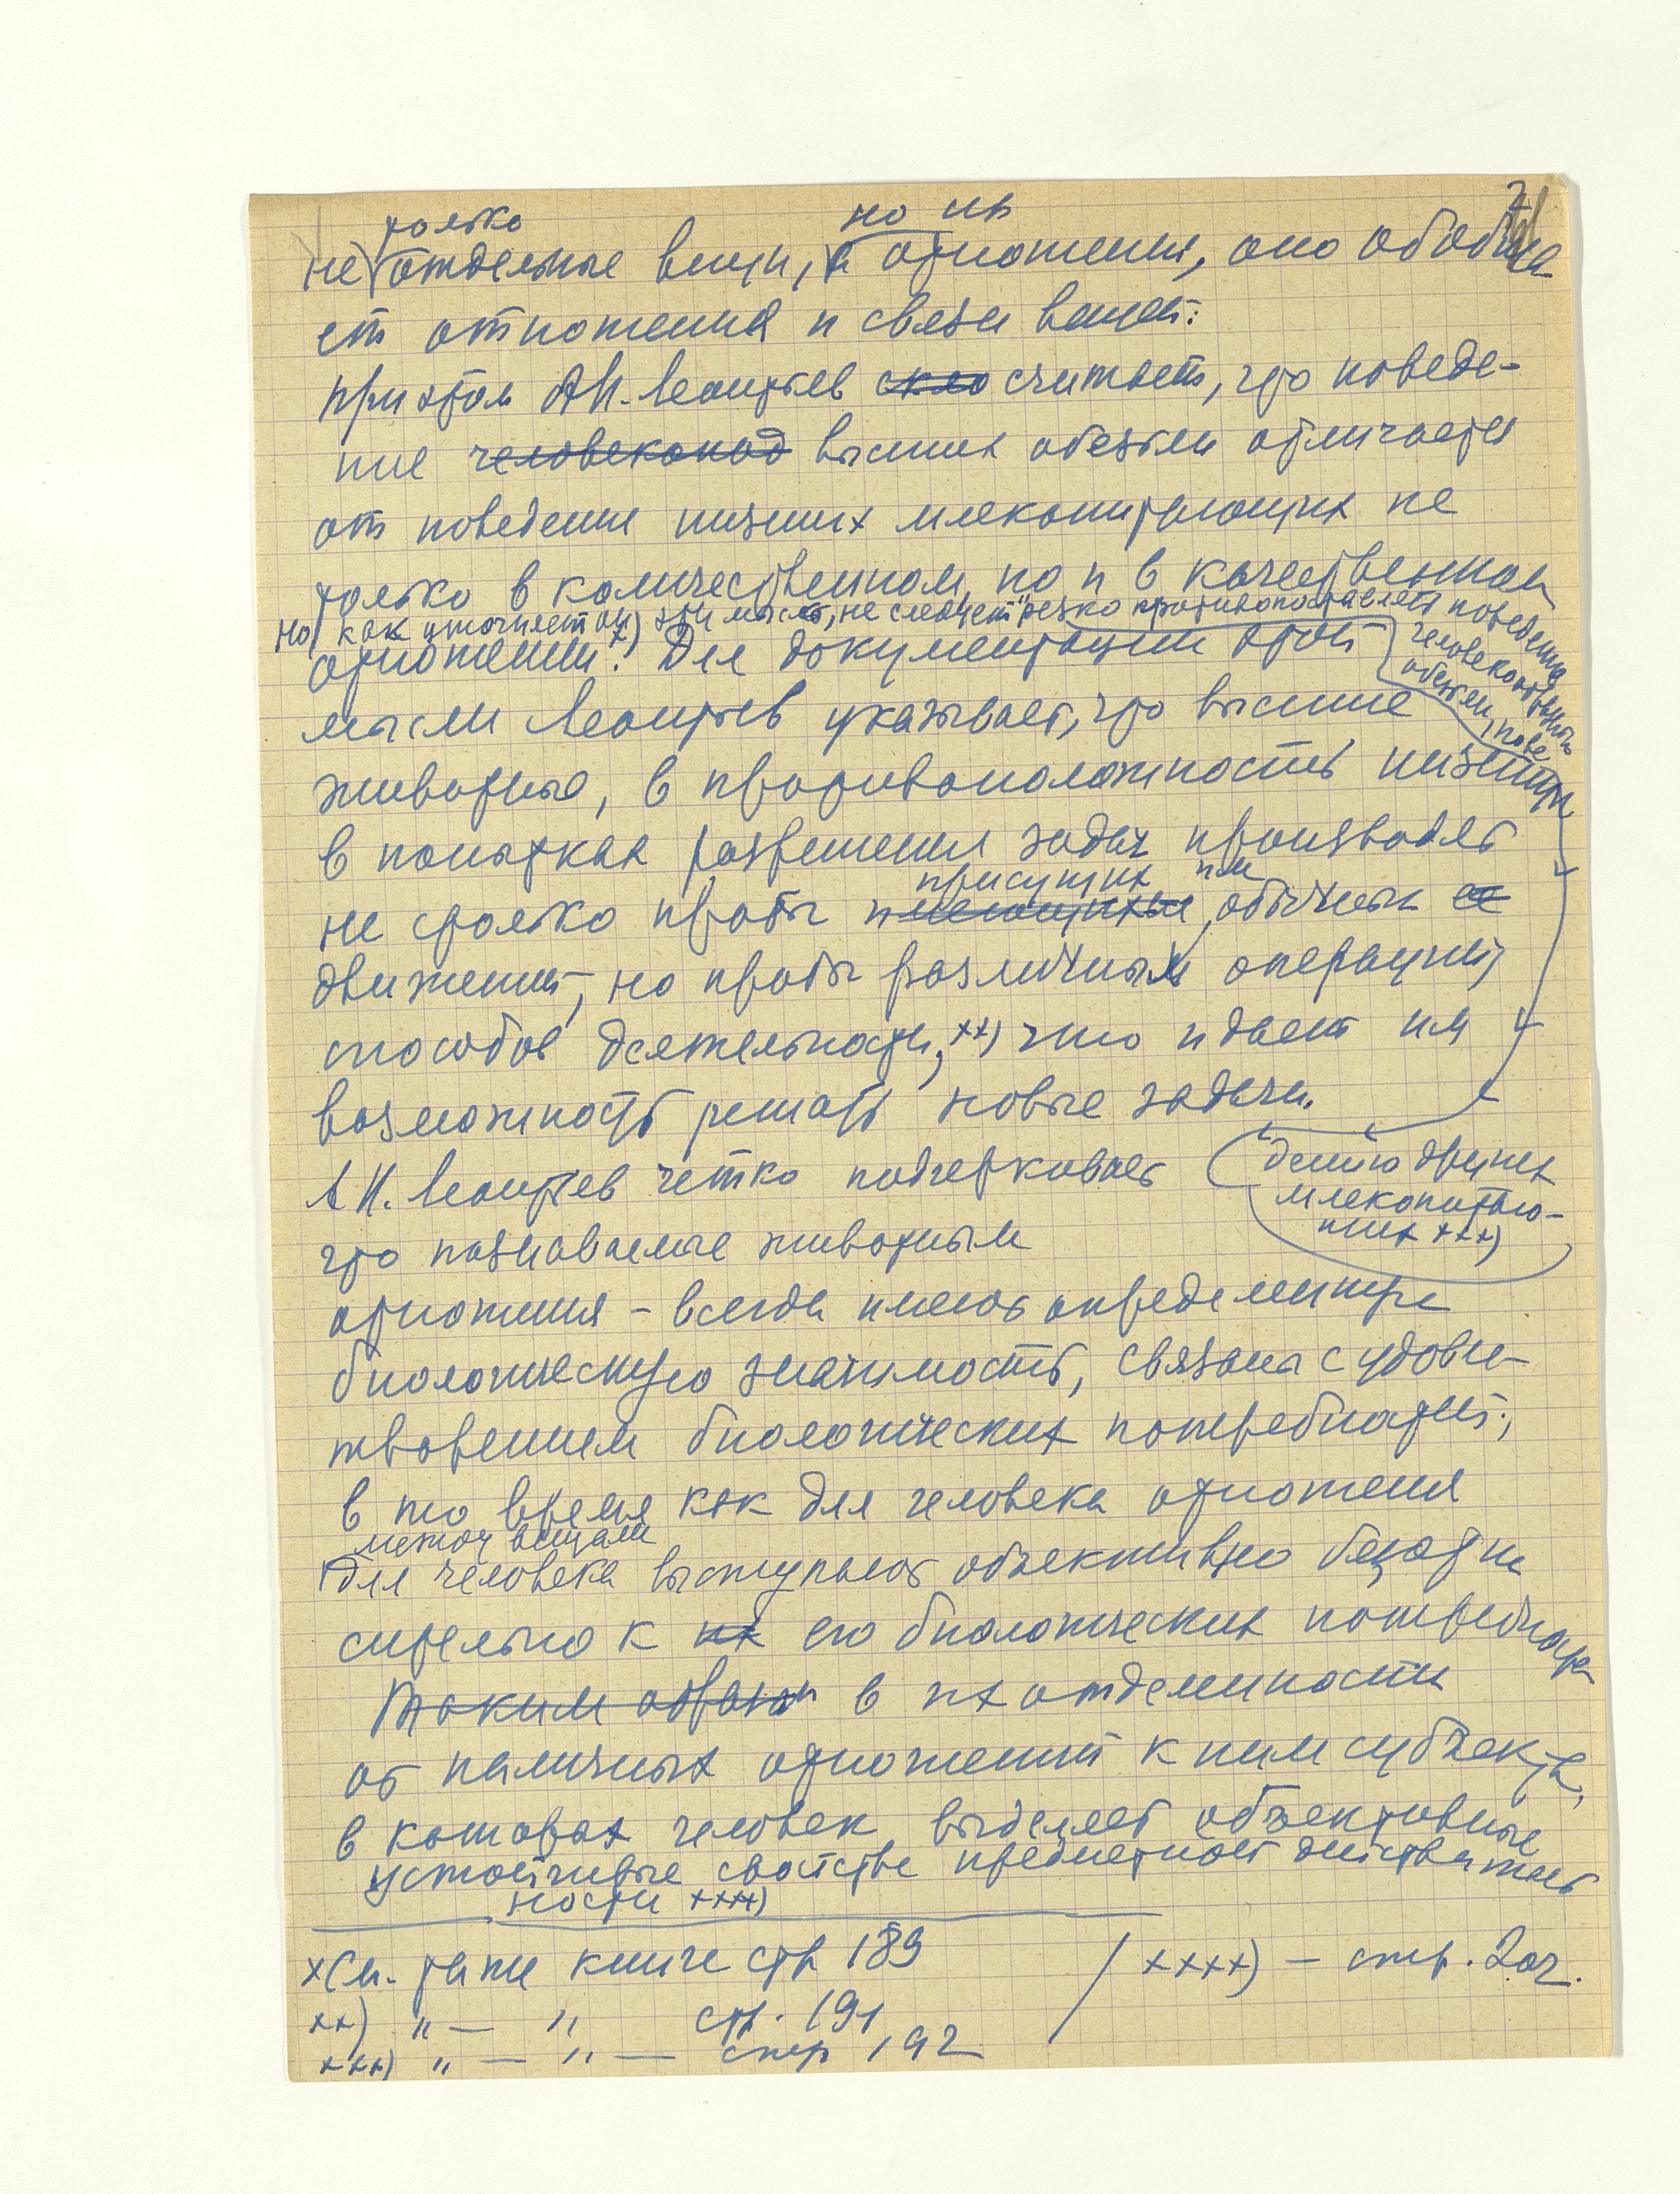 2
только но их
не отдельные вещи, а отношения, оно обобща
ет отношения и связи вещей.
При этом А.Н. Леонтьев считает, что поведе-
ние человекопод высших обезьян отличается
от поведения низших млекопитающих не
только в количественном, но и в качественном
но, как уточняет он эту мысль, не следует резко противопоставлять поведение
человекообразных
обезьян, пове
отношении. x) Для документации этой
мысли Леонтьев указывает, что высшие
животные, в противоположность низшим
в попытках разрешения задач производят
присущих им
не столько пробы имеющихся обычных
движений, но пробы различных операций,
способов деятельности, xx) что и дает им
возможность решать новые задачи.
А.Н. Леонтьев четко подчеркивает
дению других
млекопитаю-
щих xxx)
что познаваемые животным
отношения – всегда имеют определенную
биологическую значимость, связаны с удовле-
творением биологических потребностей,
в то время как для человека отношения
между вещами
для человека выступают объективно безотно
сительно к их его биологических потребностей
Таким образом в их отделенности
от наличных отношений к ним субъекта,
в которых человек выделяет объективные
устойчивые свойства предметной действитель
ности xxxx)
x См. та же книге стр 189
xx) " — " стр. 191
xxx) " — " — стр 192
/ xxxx) – стр. 202.